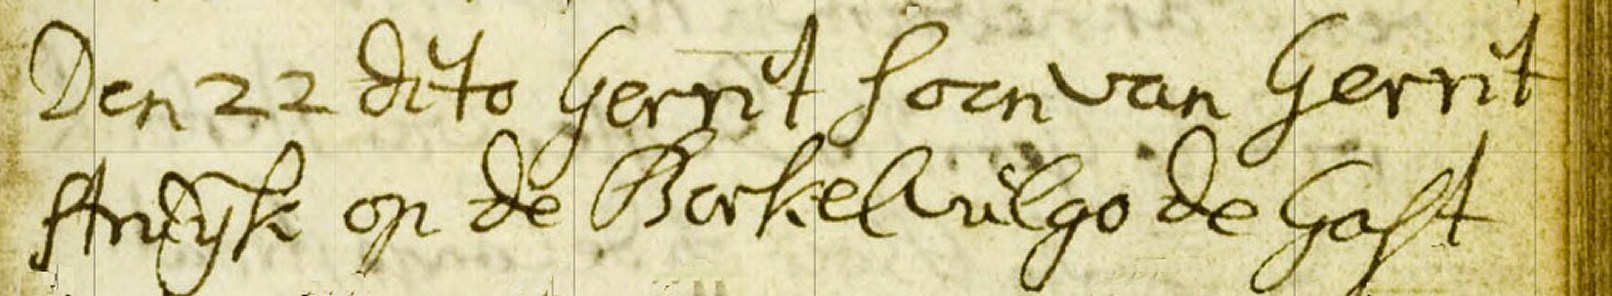 Den 22 dito Gerrit soen van Gerrit
struijk op de Borkel vulgo de Gast